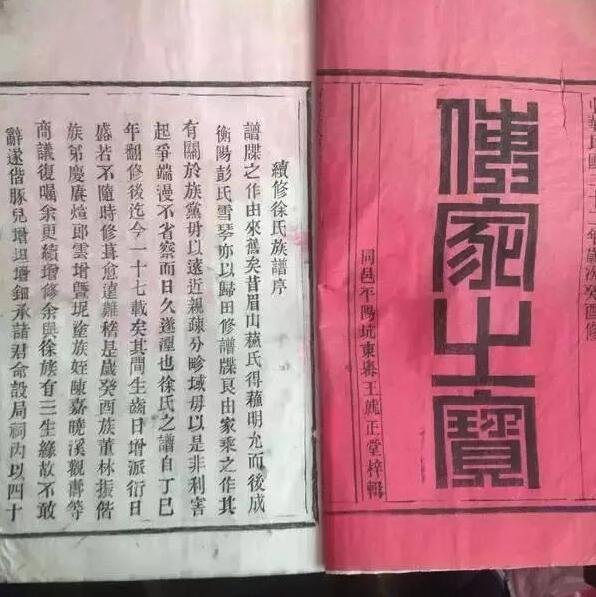 中華民國二十二年歲次癸酉修
傳家之寶
同邑平陽坑東嶴王毓正堂梓輯
續修徐氏族譜序
譜牒之作由來舊矣昔眉山蘓氏得蘓明允而後成
衡陽彭氏雪琴亦以歸田修譜牒良由家乘之作其
有關於族黨毋以遠近親疎分畛域毋以是非利害
起爭端漫不省察而日久遂湮也徐氏之譜自丁巳
年翻修後迄今一十七載矣其間生齒日增派衍日
盛若不隨時修葺愈遠難稽是歲癸酉族董林振偕
族弟慶賡煊郎雲增暨坭塗族姪陳嘉曉溪觀壽等
商議復囑余更續增修余與徐族有三生緣故不敢
辭遂偕豚兒增坦增鈿承諸君命設局祠內以四十